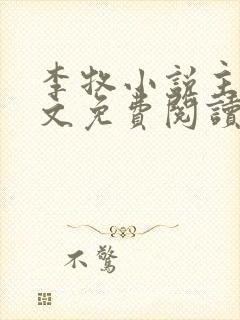 李牧小説主
文免費閱讀
不驚